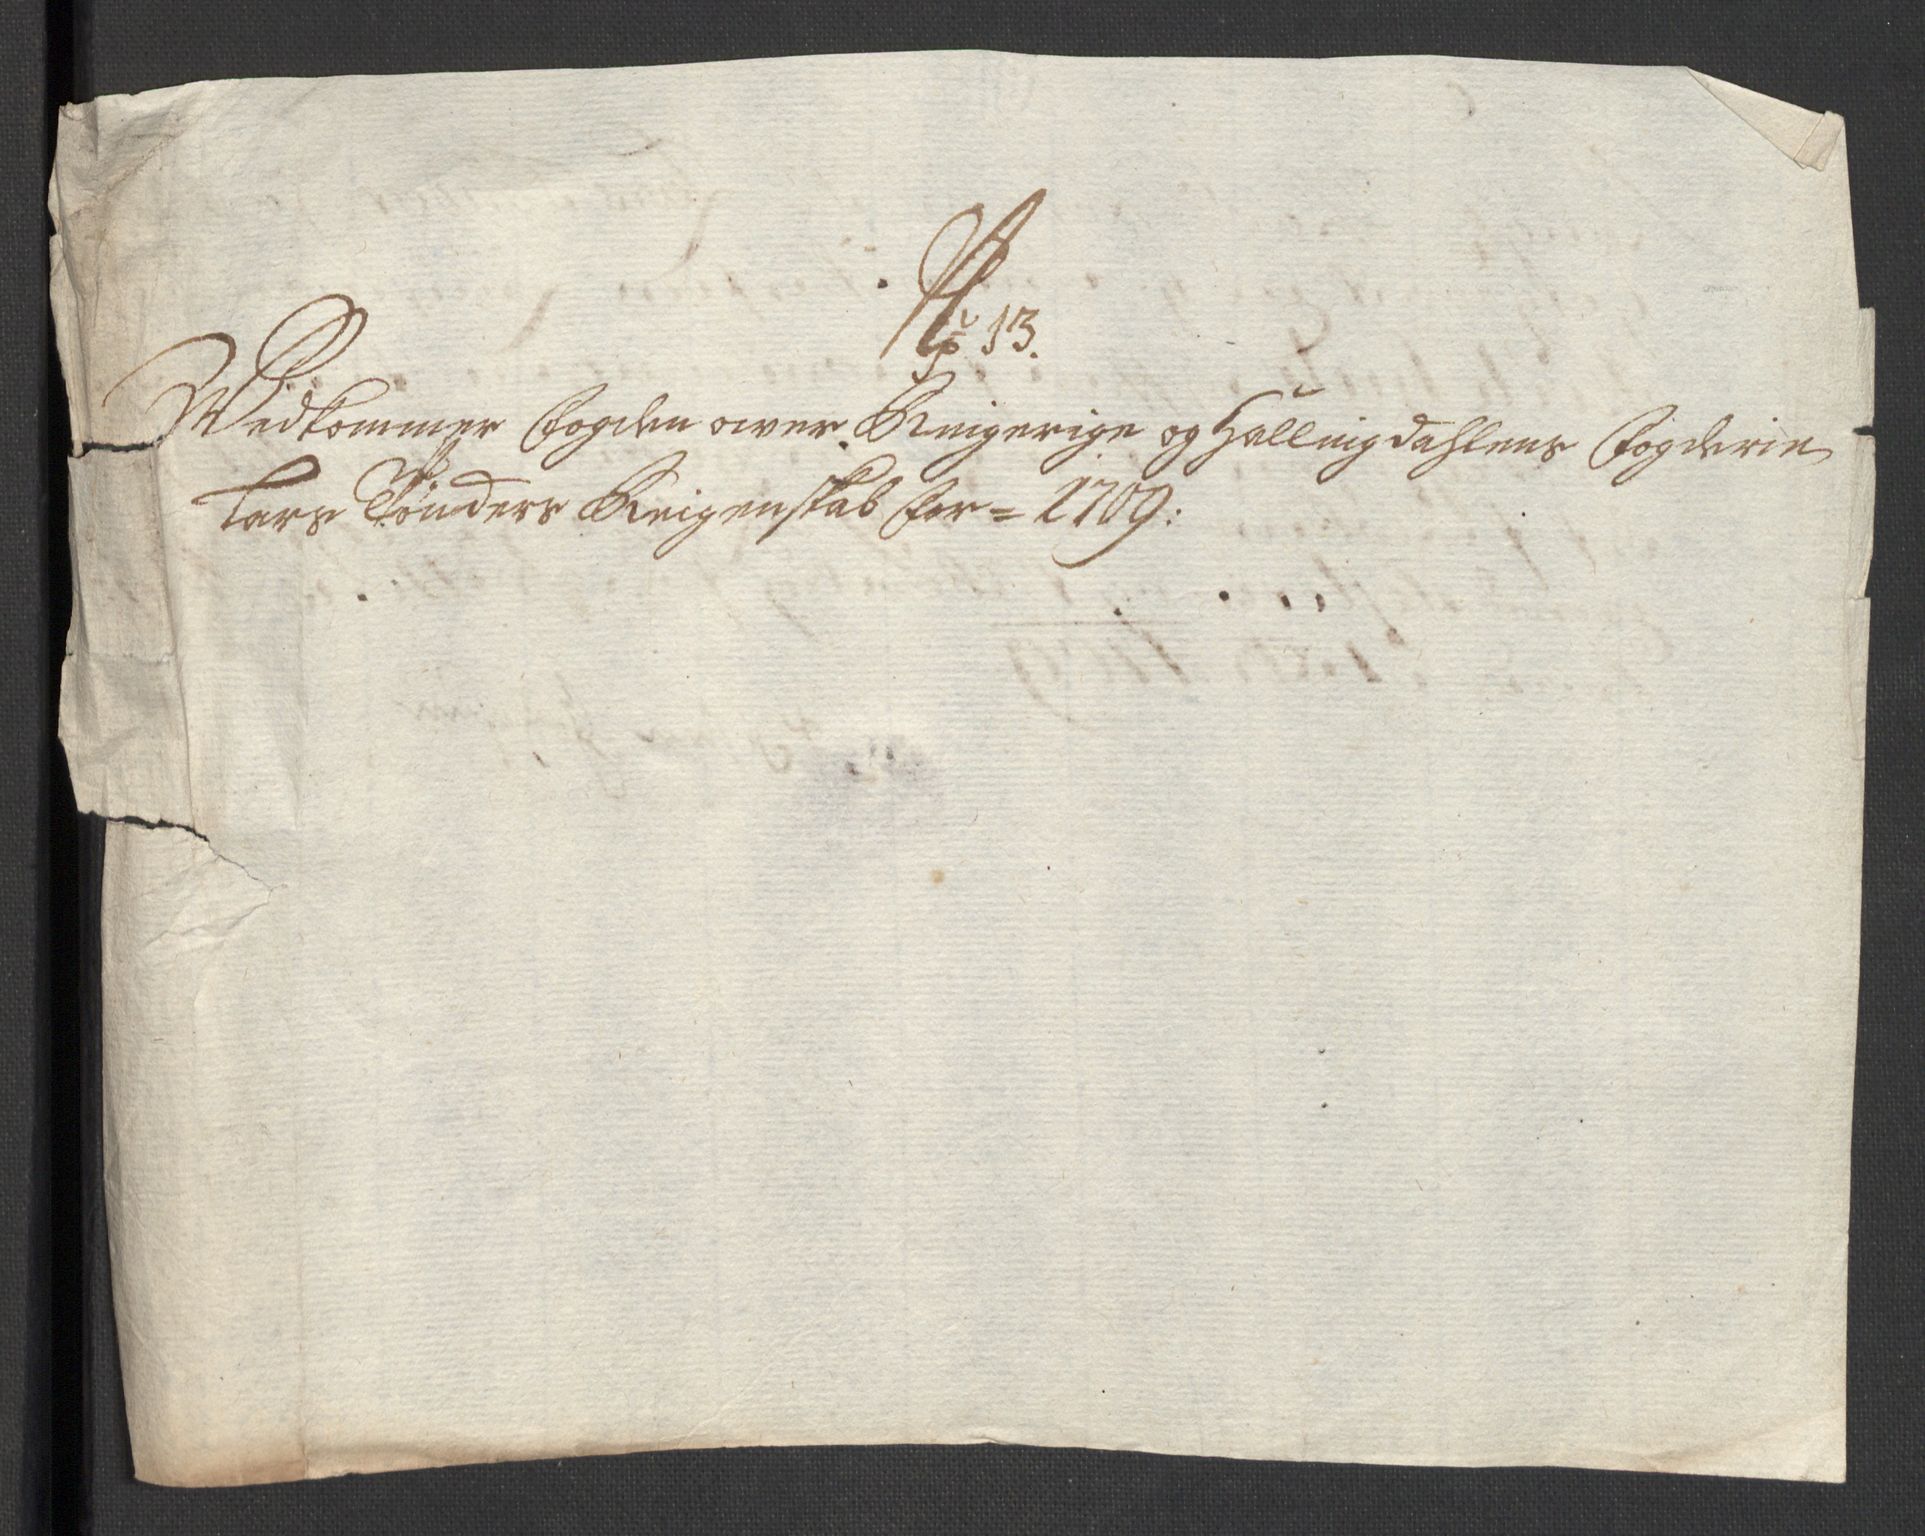 No 13.
Wedkommer Fogden ower Ringerige og Hallingdahlens Fogderie
Lars Tønders Reigenskab for = 1709: